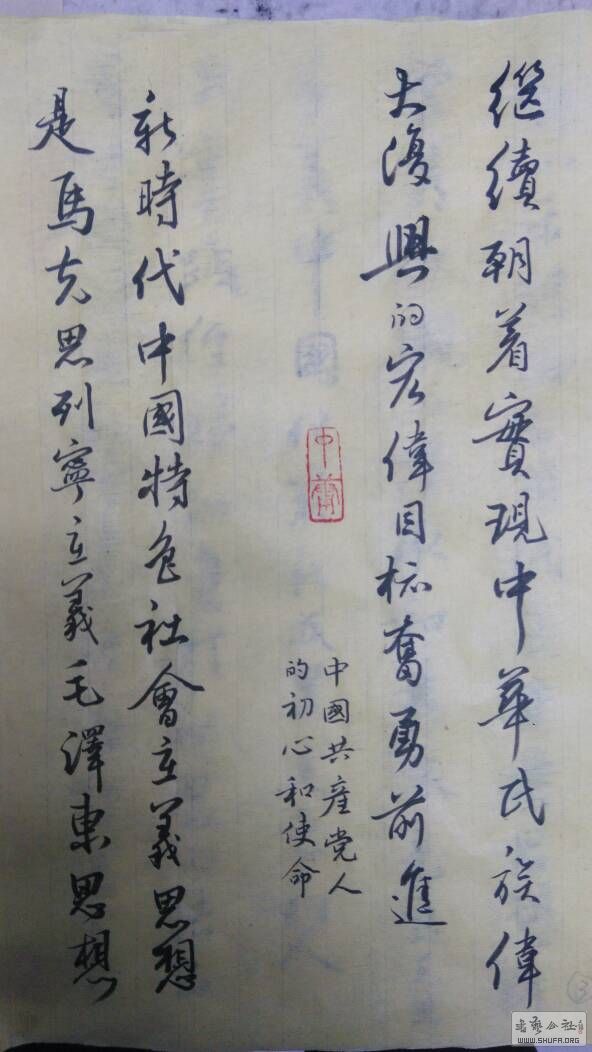 繼續朝着實現中華民族偉
大復興的宏偉目标奮勇前進
中國共產党人
的初心和使命
新時代中國特色社會主義思想
是馬克思列寧主義毛澤東思想
③
书艺公社
WWW.SHUFA.ORG